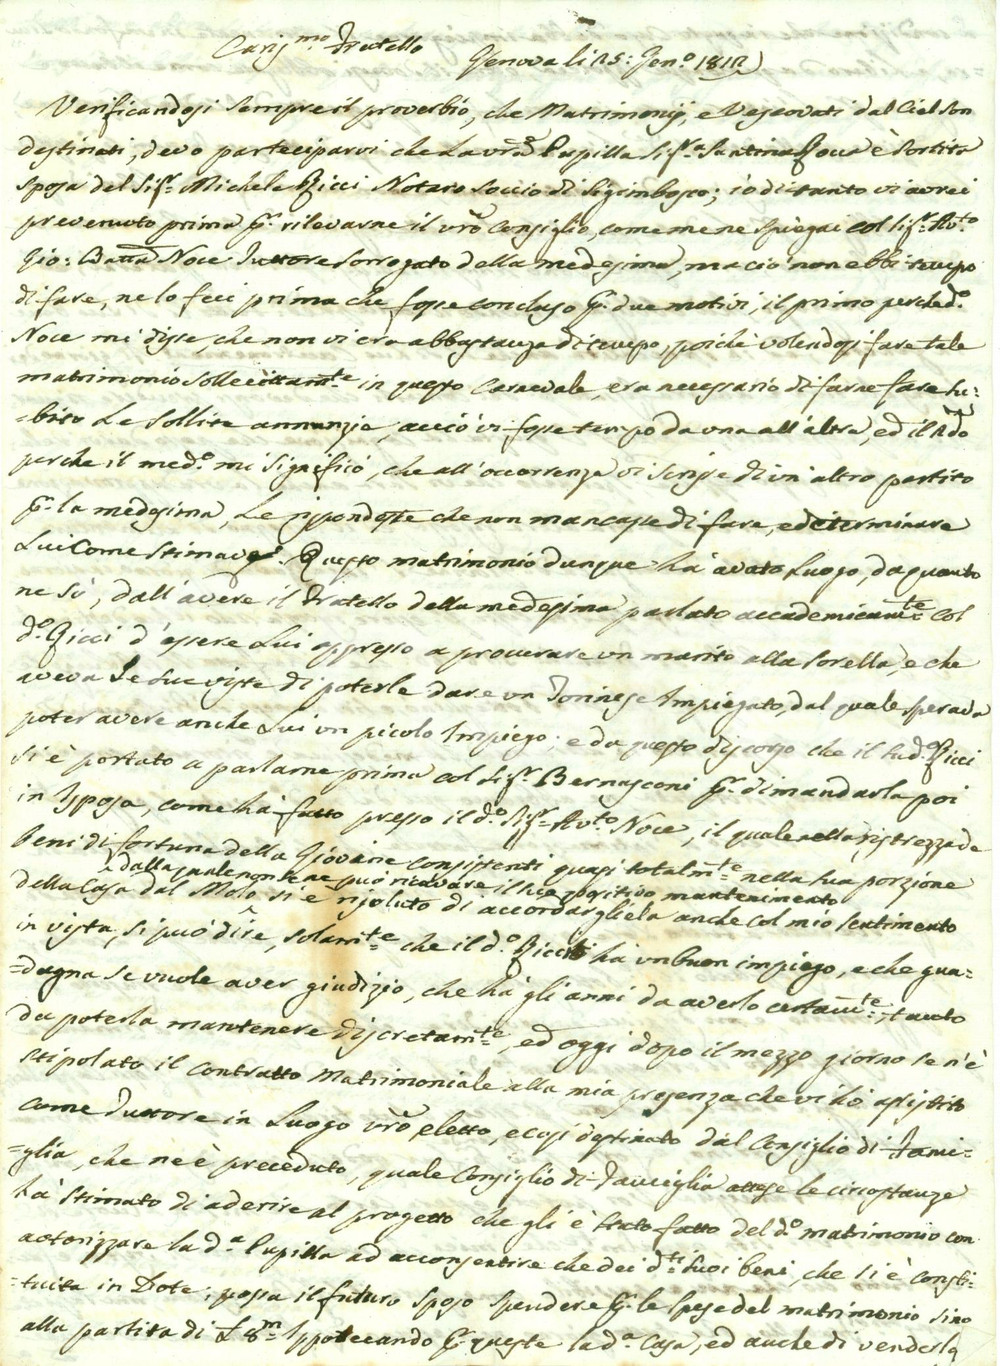 Carissmo Fratello Genova li 25: Genº 1812
Verificandosi sempre il proverbio, che Matrimonij, e Vescovati dal Ciel son
destinati, devo parteciparvi che La vrã Pupilla Sigª Santina è sortita
sposa del Sigr Michele Ricci Notaro Soccio di Sigimbosco; io di tanto vi avrei
prevenuto prima pr rilevarne il vrõ Consiglio, come me ne spiegai col Sigr Avto
Gio: Batta Noce Tuttore Sorrogato della medesima, ma ciò non ebbi tempo
di fare, ne lo feci prima che fosse concluso pr due motivi, il primo perche dº
Noce mi disse, che non vi era abbastanza di tempo, poiche volendosi fare tale
matrimonio sollecittamte in questo Carnevale, era necessario di farne fare su=
=bito Le Sollite annunzie, acciò vi fosse tempo da una all'altra, ed il 2dº
perche il medº mi significò, che all'occorrenza vi scrisse di un altro partito
pr la medesima, Le rispondeste che non mancasse di fare, e determinare
Lui Come Stimava. Questo matrimonio dunque ha avuto Luogo, da quanto
ne sò, dall'avere il Fratello della medesima parlato accademicamte col
dº Ricci d'essere Lui appresso a procurare un marito alla Sorella, e che
aveva Le sue viste di poterle dare un Torinese Impiegato, dal quale sperava
poter avere anche Lui un picolo Impiego; e da questo discorso che il sudº Ricci
si è portato a parlarne prima col Sigr Bernasconi pr dimandarla poi
in Isposa, come ha fatto presso il dº Sigr Avto Noce, il quale nella ristrezza de
beni di fortuna della Giovine consistenti quasi totalmte nella sua porzione
dalla quale non se ne può ricavare il suo positivo mantenimento
della Casa dal Molo, si è risoluto di accordargliela anche col mio sentimento
in vista, si può dire, solamte che il dº Ricci ha un buon impiego, e che gua=
=dagna se vuole aver giudizio, che ha gli anni da averlo certamte, tanto
da poterla mantenere discretamte, ed oggi dopo il mezzo giorno se n'è
stipolato il Contratto Matrimoniale alla mia presenza che vi hò assistito
come Tuttore in Luogo vrõ eletto, e così destinato dal Consiglio di Fami=
=glia, che ne è preceduto, quale Consiglio di Famiglia attese le circostanze
ha stimato di aderire al progetto che gli è stato fatto del dº matrimonio con
autorizzare la dª Pupilla ad acconsentire che dei dti suoi beni, che si è costi=
=tuita in Dote; possa il futuro sposo spendere pr le spese del matrimonio sino
alla partita di £ 8m Ippotecando pr queste la dª Casa, ed anche di venderla